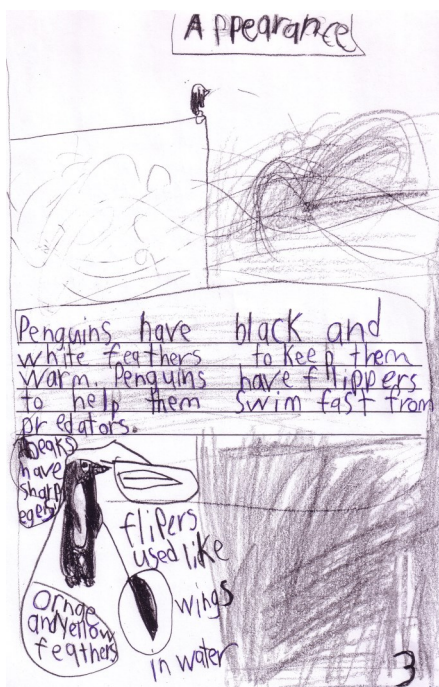 Appearance
Penguins have black and
white feathers to keep them
warm. Penguins have flippers
to help them swim fast from
predators.
beaks
have
sharp
eges!
flipers
used like
wings
in water
Ornge
and yellow
feathers
3